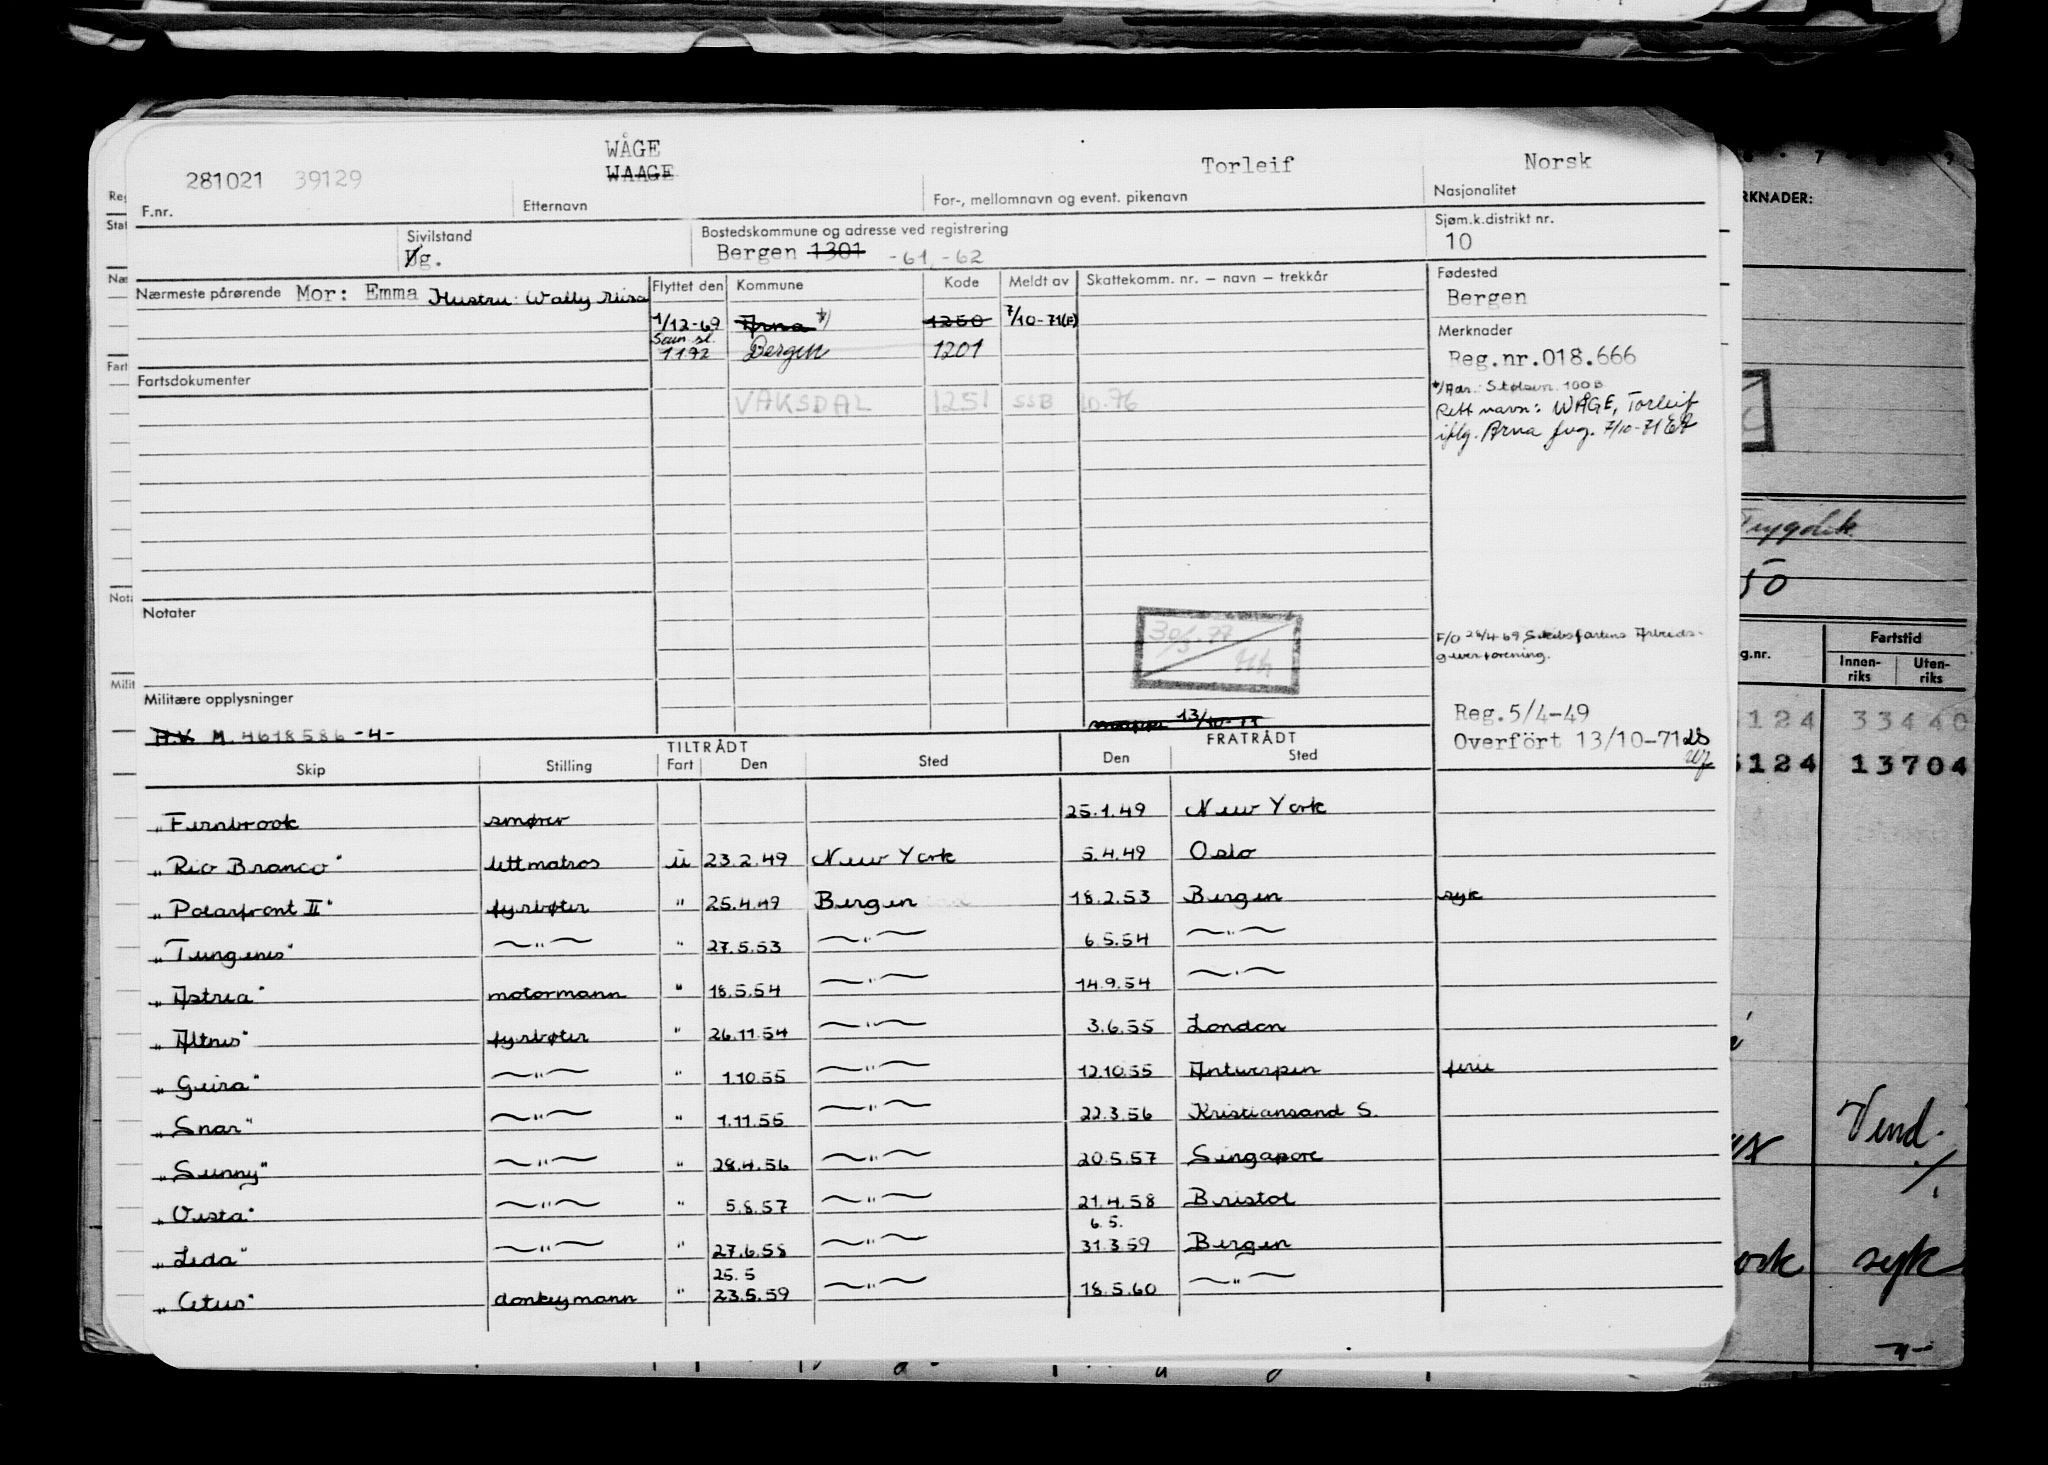 WÅGE
281021 39129 WAAGE Torleif Norsk
F.nr. Etternavn For-, mellomnavn og event. pikenavn Nasjonalitet
Sivilstand Bostedskommune og adresse ved registrering Sjøm.k.distrikt nr.
Ug. Bergen 1301 -61, -62 10
Nærmeste pårørende Mor: Emma Hustru: Wally Flyttet den Kommune Kode Meldt av Skattekomm. nr. – navn – trekkår Fødested
Bergen
1/12-69 Arna *) 1250 7/10-71(E)
Merknader
1172 Bergen 1201
Reg.nr.018.666
Fartsdokumenter
VAKSDAL 1251 SSB 10-76
*/Adr.: Stølsvn. 100B
Rett navn: WÅGE, Torleif
iflg. Arna fvg. 7/10-71
Notater
30/3-77
F/O 28/4-69 Skibsfartens Arbeids-
giverforening.
Militære opplysninger
Reg.5/4-49
H.V. M. 4618586 -4- 13/10-71
Overfört 13/10-71
TILTRÅDT FRATRÅDT
Skip Stilling Fart Den Sted Den Sted
"Fernbrook smører 25.1.49 New York
"Rio Branco" lettmatros u 23.2.49 New York 5.4.49 Oslo
"Polarfront II" fyrbøter " 25.4.49 Bergen 18.2.53 Bergen syk
"Tungenes" —"— " 27.5.53 —"— 6.5.54 —"—
"Astrea" motormann " 18.5.54 —"— 14.9.54 —"—
"Altnes" fyrbøter " 26.11.54 —"— 3.6.55 London
"Geira" —"— " 1.10.55 —"— 12.10.55 Antwerpen ferie
"Snar" —"— " 1.11.55 —"— 22.3.56 Kristiansand S.
"Sunny" —"— " 28.4.56 —"— 20.5.57 Singapore
"Vesta" —"— " 5.8.57 —"— 21.4.58 Bristol
6.5.
"Leda" —"— " 27.6.58 —"— 31.3.59 Bergen
25.5
"Cetus" donkeymann " 23.5.59 —"— 18.5.60 —"—
RKNADER:
Trygdek
50
Fartstid
g.nr. Innen-riks Uten-riks
124 33440
5124 13704
Vend.
syk